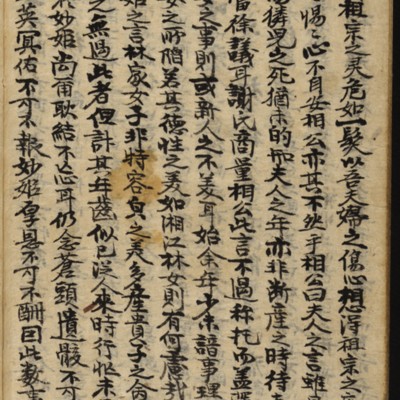 祖宗之灵危如一髮以吾夫婦之傷心想得祖宗之
惕之心不自安相公亦其不然乎相公曰夫人之言雖
兒之死猶未的而夫人之年亦非斷産之時待
當徐議耳謝氏商量相公此言不過称托而盖
之事則或新人之不美耳始余年少未諳事理
女之所陷若其德性之美如湘江林女則有何慮哉
姬之言林家女子非特容皃之美多産貴子之
之無過此者但計其年齒似已從人來時行忙未
妙姬尚耿結不忘耳仍念蒼頭遺骸不可
英冥佑不可不報妙姬厚恩不可不酬因此數事